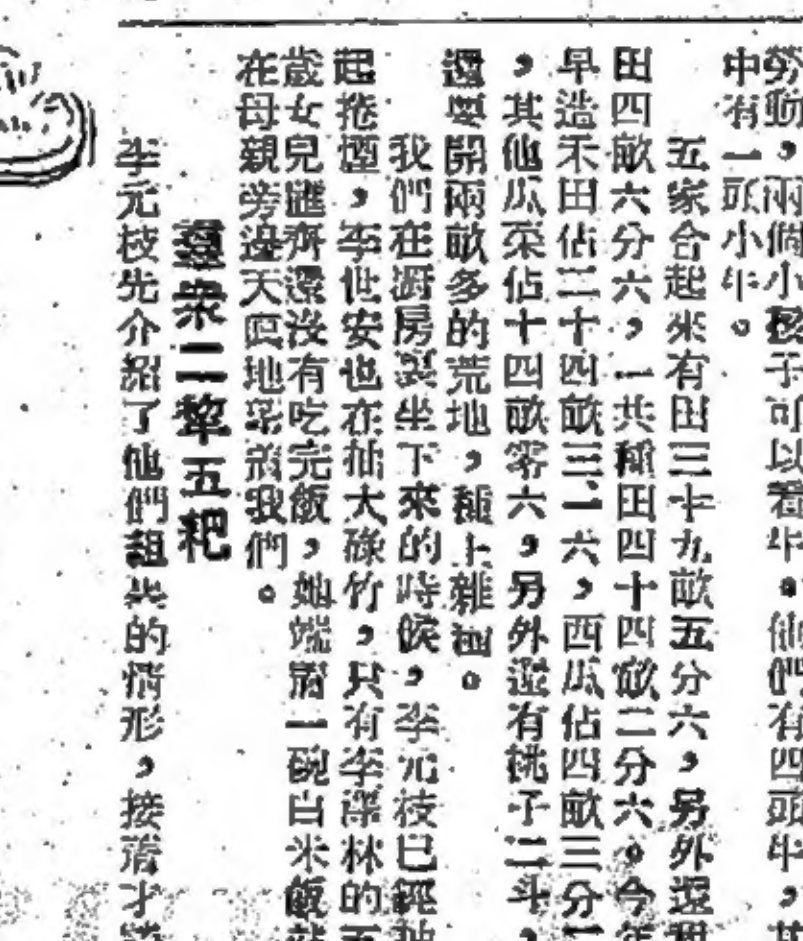 勞動，兩個小孩子可以看牛。他們有四頭牛，其
中有一頭小牛。
五家合起來有田三十九畝五分六，另外還租
田四畝六分六，一共種田四十四畝二分六。今年
早造禾田佔二十四畝三、一六，西瓜佔四畝三分二
，其他瓜菜佔十四畝零六，另外還有桃子二斗，
還要開兩畝多的荒地，種上雜糧。
我們在廚房裏坐下來的時候，李元枝已經抽
起捲煙，李世安也在抽大碌竹，只有李深林的五
歲女兒進齊還沒有吃完飯，她端着一碗白米飯站
在母親旁邊天眞地望着我們。
羣衆二犂五耙
李元枝先介紹了他們組共的情形，接着才談